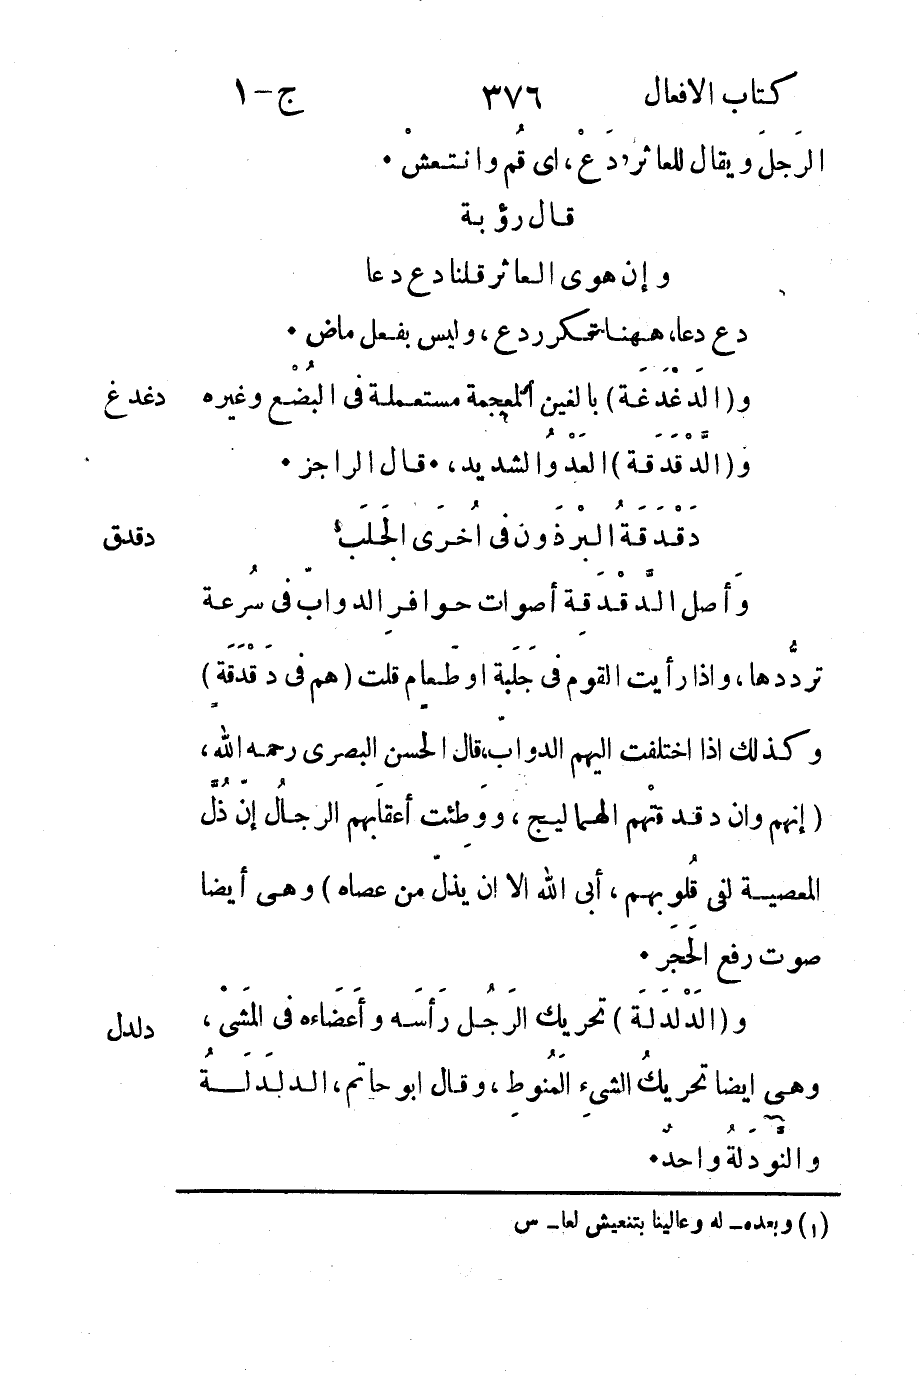 كتاب الافعال ٣٧٦ ج-١
الرَجلَ ويقال للعاثر، دَعْ، اى قُم وانتعشْ •
قال رؤبة
وإن هوى العاثر قلنا دع دعا
دع دعا، ههنا تكرر دع، وليس بفعل ماض •
و(الدَغْدَغَة) بالغين المعجمة مستعملة فى البُضْع وغيره دغدغ
و(الدَّقْدَقَة) العَدْوُ الشديد، • قال الراجز •
دَقْدَقَةُ البِرْذَون فى اُخرَى الجَلَب دقدق
وأصل الدَّقْدَقِة أصوات حوافِر الدوابّ فى سُرعة
تردُّدها، واذا رأيت القوم فى جَلَبة او طَعامٍ قلت (هم فى دَقْدَقَةٍ)
وكذلك اذا اختلفت اليهم الدوابّ، قال الحسن البصرى رحمه الله،
(إنهم وان دقدقتْهم الهماليج، ووَطِئت أعقابَهم الرجالُ إنّ ذُلَّ
المعصية لفى قُلوبهم، أبى الله الا ان يذلّ من عصاه) وهى أيضا
صوت رفع الحَجَر •
و(الدَلْدَلَة) تحريك الرَجُل رَأسَه وأعَضَاءَه فى المَشىْ، دلدل
وهى ايضا تحريكُ الشىء المَنُوطِ، وقال ابو حاتِم، الدَلدَلَةُ
والنَّوْدَلَةُ واحدٌ•
(١) وبعده- له وعالينا بتنعيش لعا- س